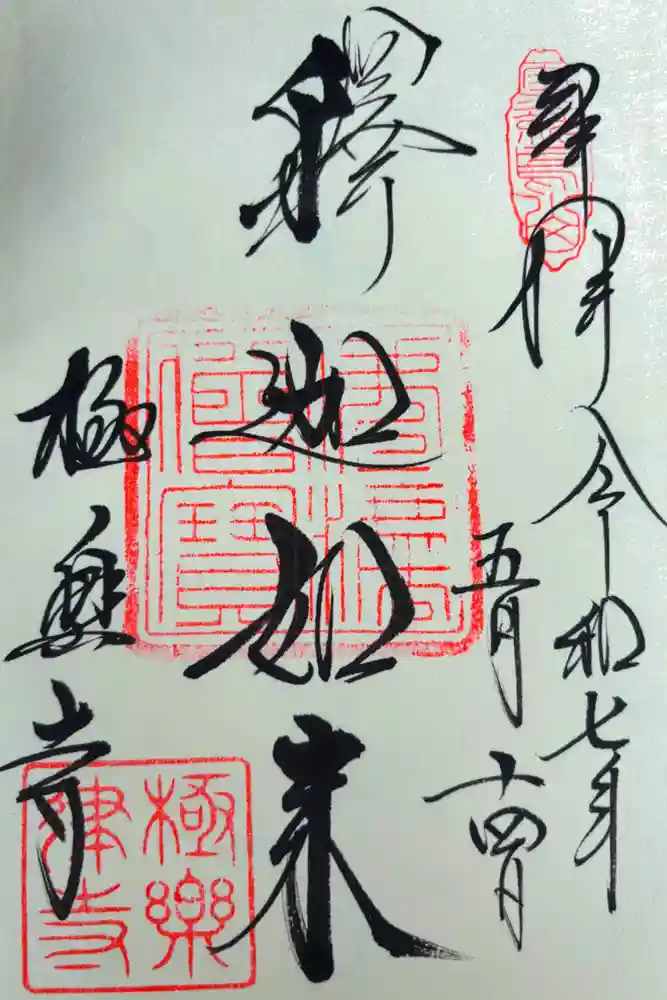 奉拝 令和七年
五月十四日
釋迦如来
極楽寺
佛法僧寶
極樂律寺